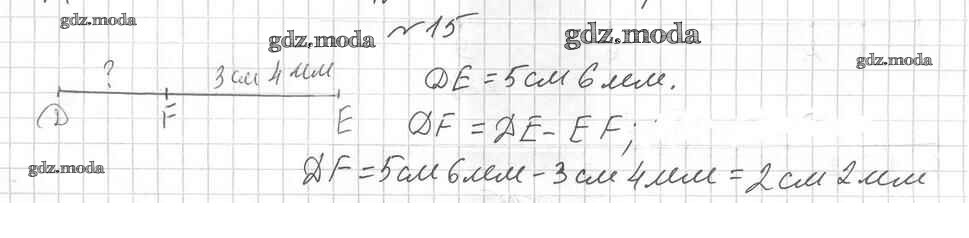 gdz.moda
gdz.moda №15 gdz.moda
? 3 см 4 мм DE = 5 см 6 мм. gdz.moda
D F E DF = DE - EF;
gdz.moda DF = 5 см 6 мм - 3 см 4 мм = 2 см 2 мм